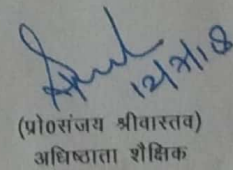 12/7/18
(प्रो0संजय श्रीवास्तव)
अधिष्ठाता शैक्षिक